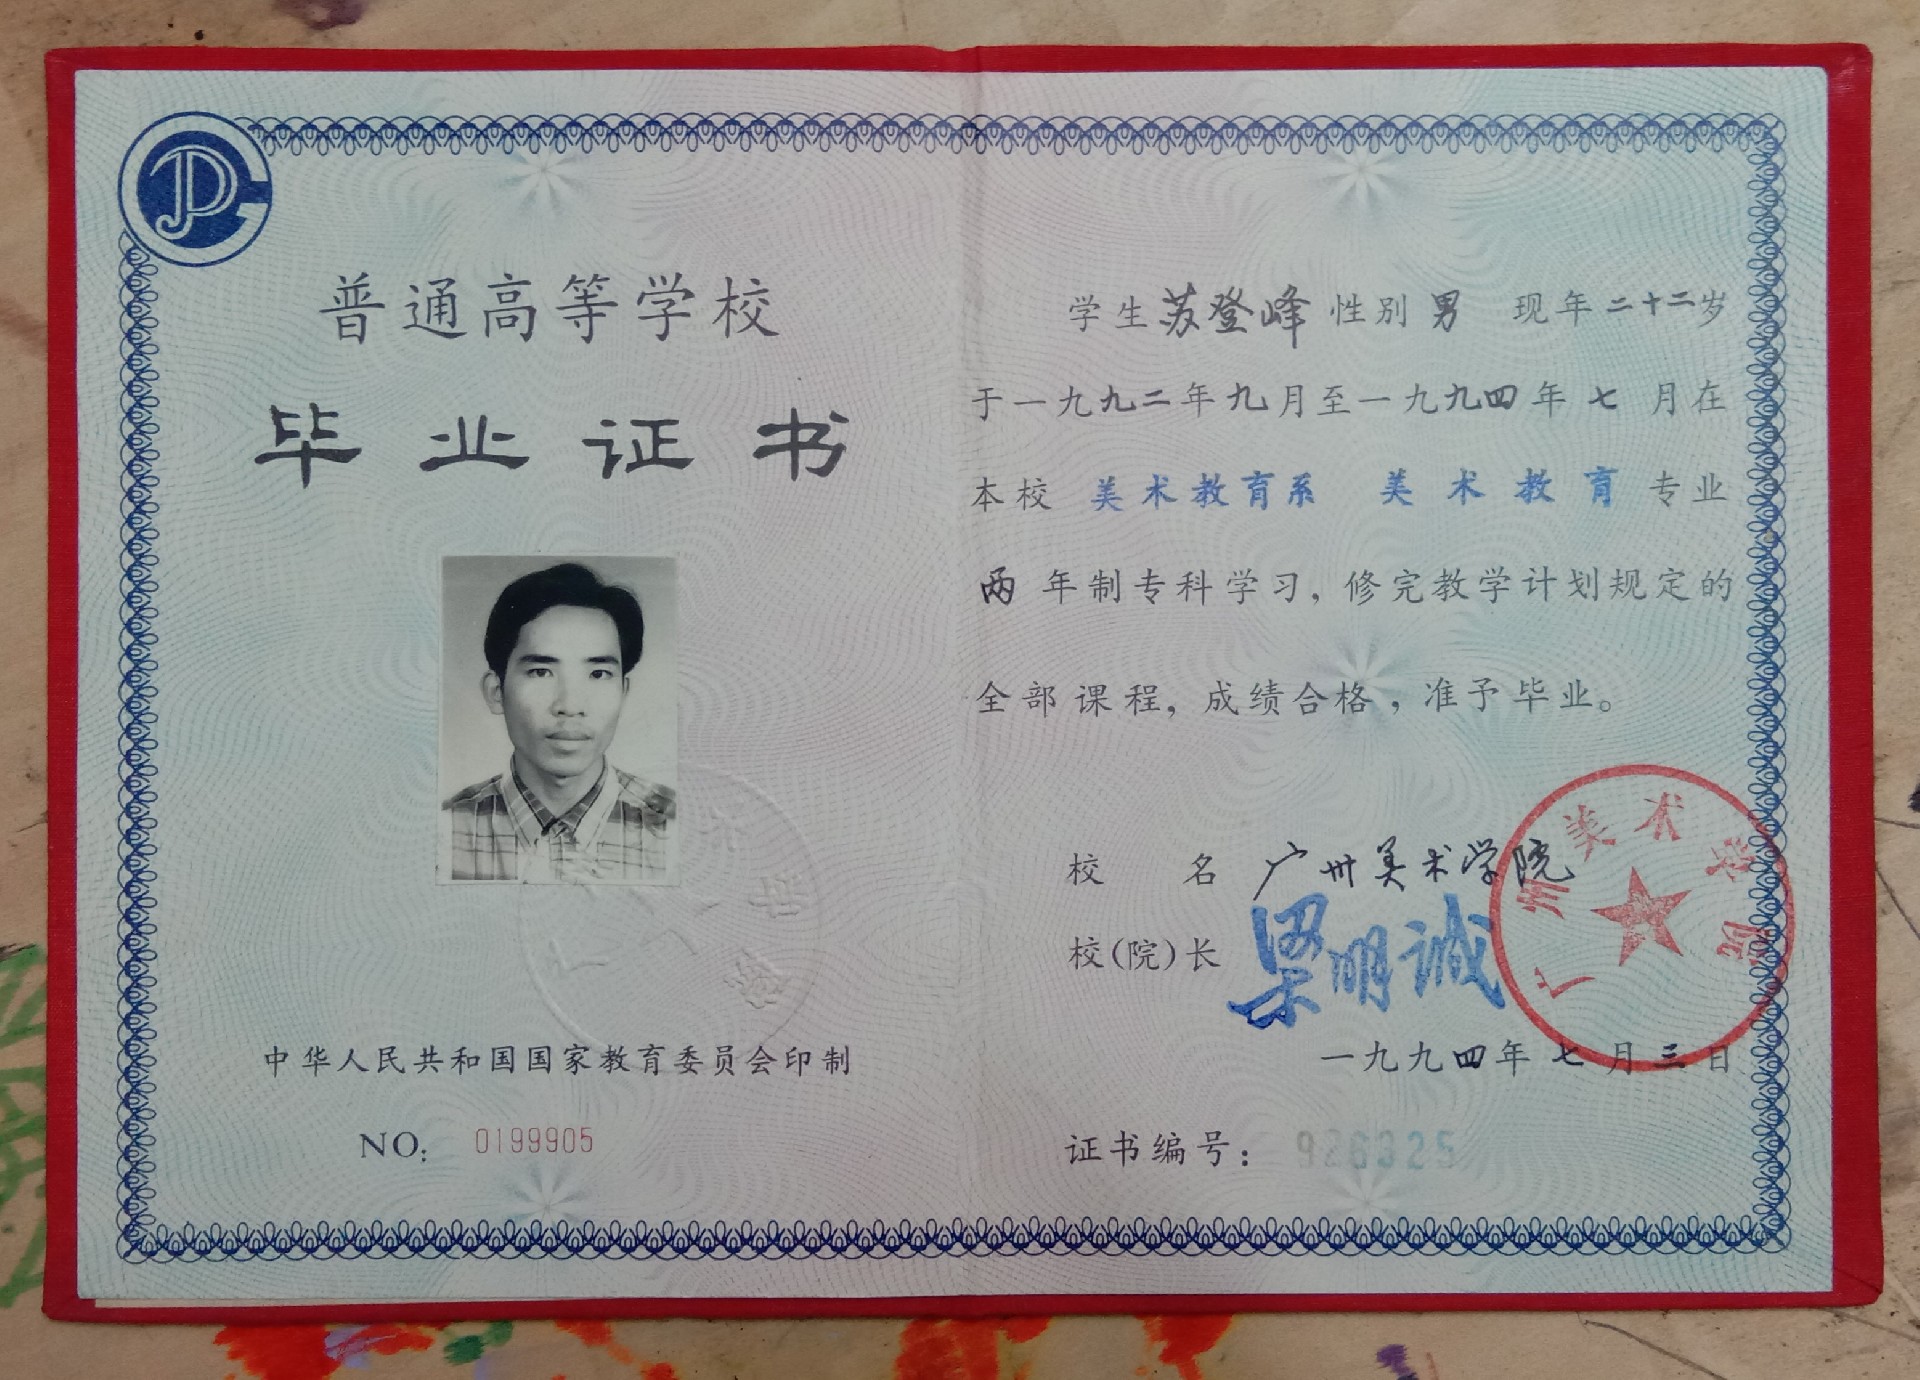 普通高等学校
毕业证书
中华人民共和国国家教育委员会印制
NO: 0199905
学生苏登峰性别男 现年二十二岁
于一九九二年九月至一九九四年七月在
本校 美术教育系 美术教育 专业
两年制专科学习，修完教学计划规定的
全部课程，成绩合格，准予毕业。
校名 广州美术学院
校(院)长 梁明诚
广州美术学院
一九九四年七月三日
证书编号: 926325